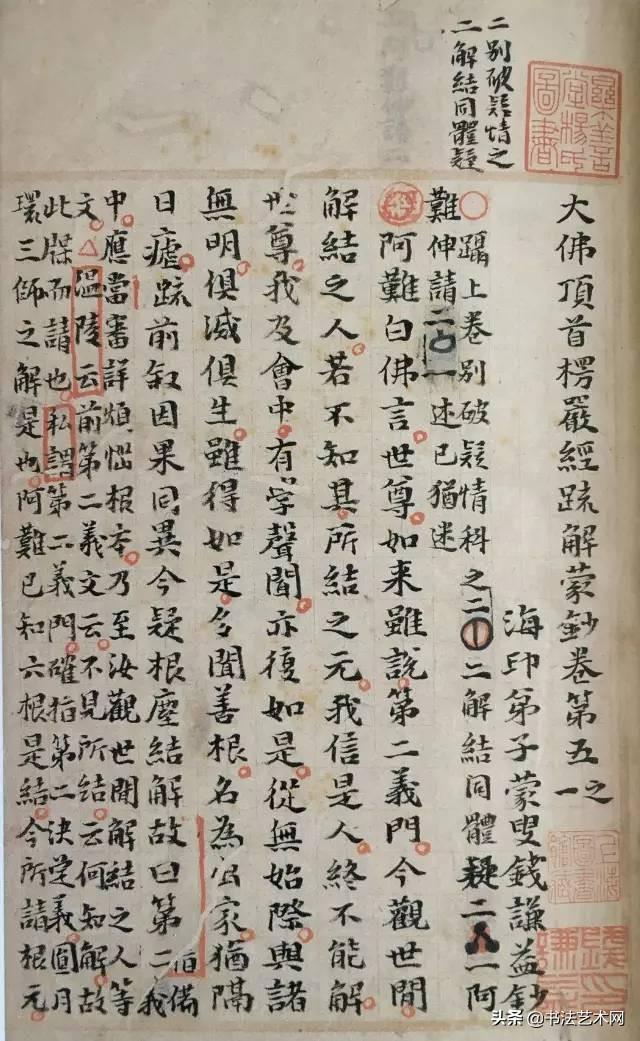 二別破疑情之
二解結同體疑
大佛頂首楞嚴經疏解蒙鈔卷第五之一
海印弟子蒙叟錢謙益鈔
○躡上卷別破疑情科之二二解結同體疑二一阿
難伸請二一述已猶迷
經阿難白佛言世尊如來雖說第二義門今觀世間
解結之人若不知其所結之元我信是人終不能解
世尊我及會中有學聲聞亦復如是從無始際與諸
無明俱滅俱生雖得如是多聞善根名為出家猶隔
日瘧疏前敘因果同異今疑根塵結解故曰第二義
中應當審詳煩惱根本乃至汝觀世間解結之人等
文△溫陵云前第二義文云不見所結云何知解故
此牒而請也私謂第二義門確指第二決定義圓月
環三師之解是也阿難已知六根是結今所請根元
头条@书法艺术网